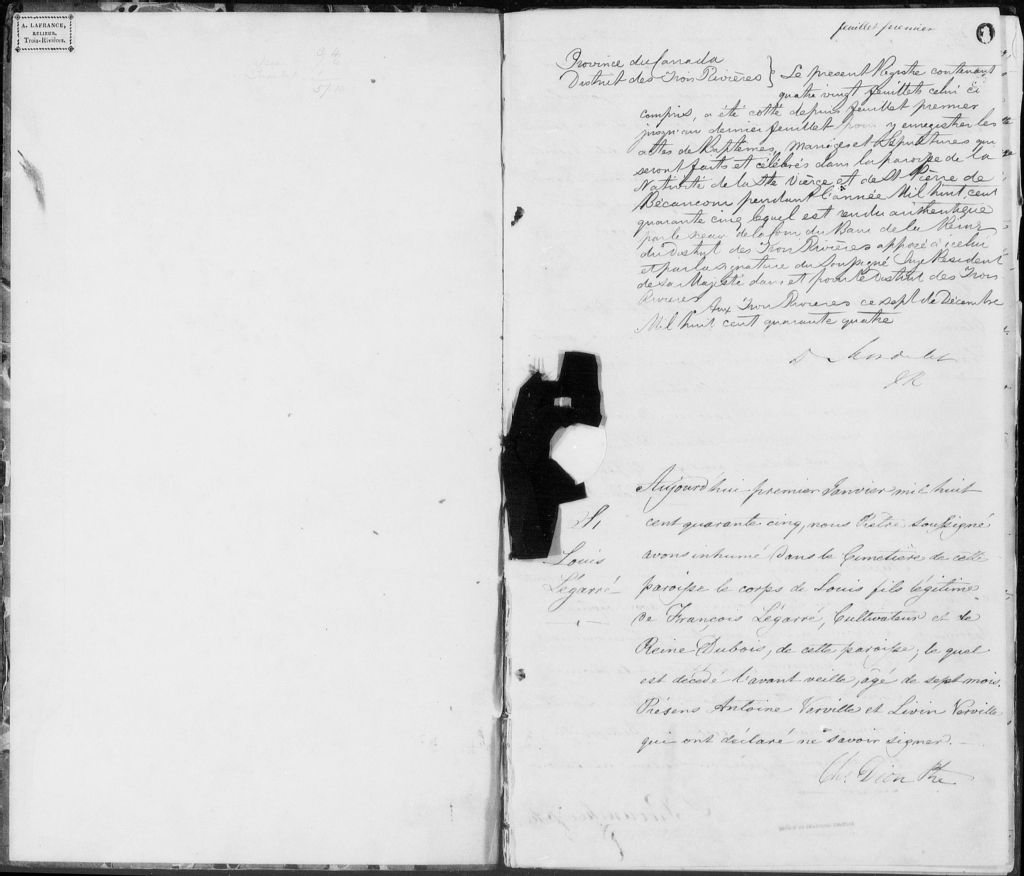 A. LAFRANCE,
RELIEUR,
Trois-Rivières.
feuillet premier
Province du Canada
District des Trois Rivières } Le present Registre contenant
quatre vingt feuillets celui ci
compris, a été cotté depuis feuillet premier
jusqu'au dernier feuillet pour y enregistrer les
actes de Baptêmes, Mariages et Sépultures qui
seront faits et célébrés dans la paroisse de la
Nativité de la Ste Vierge et de St Pierre de
Bécancour pendant l'année Mil huit cent
quarante cinq lequel est rendu authentique
par le sceau de la Cour du Banc de la Reine
du District des Trois Rivières apposé à icelui
et par la signature du Soussigné Juge Résident
de Sa Majesté dans et pour le District des Trois
Rivières Aux Trois Rivières ce sept de Décembre
Mil huit cent quarante quatre
D Mondelet
S,
Louis
Légarré
Aujourd'hui premier Janvier mil huit
cent quarante cinq, nous Prêtre soussigné
avons inhumé dans le Cimetière de cette
paroisse le corps de Louis fils légitime
de François Légarré, Cultivateur et de
Reine Dubois, de cette paroisse, le quel
est décédé l'avant veille, âgé de sept mois.
Présens Antoine Verville et Livin Verville
qui ont déclaré ne savoir signer. —
Chs. Dion Ptre